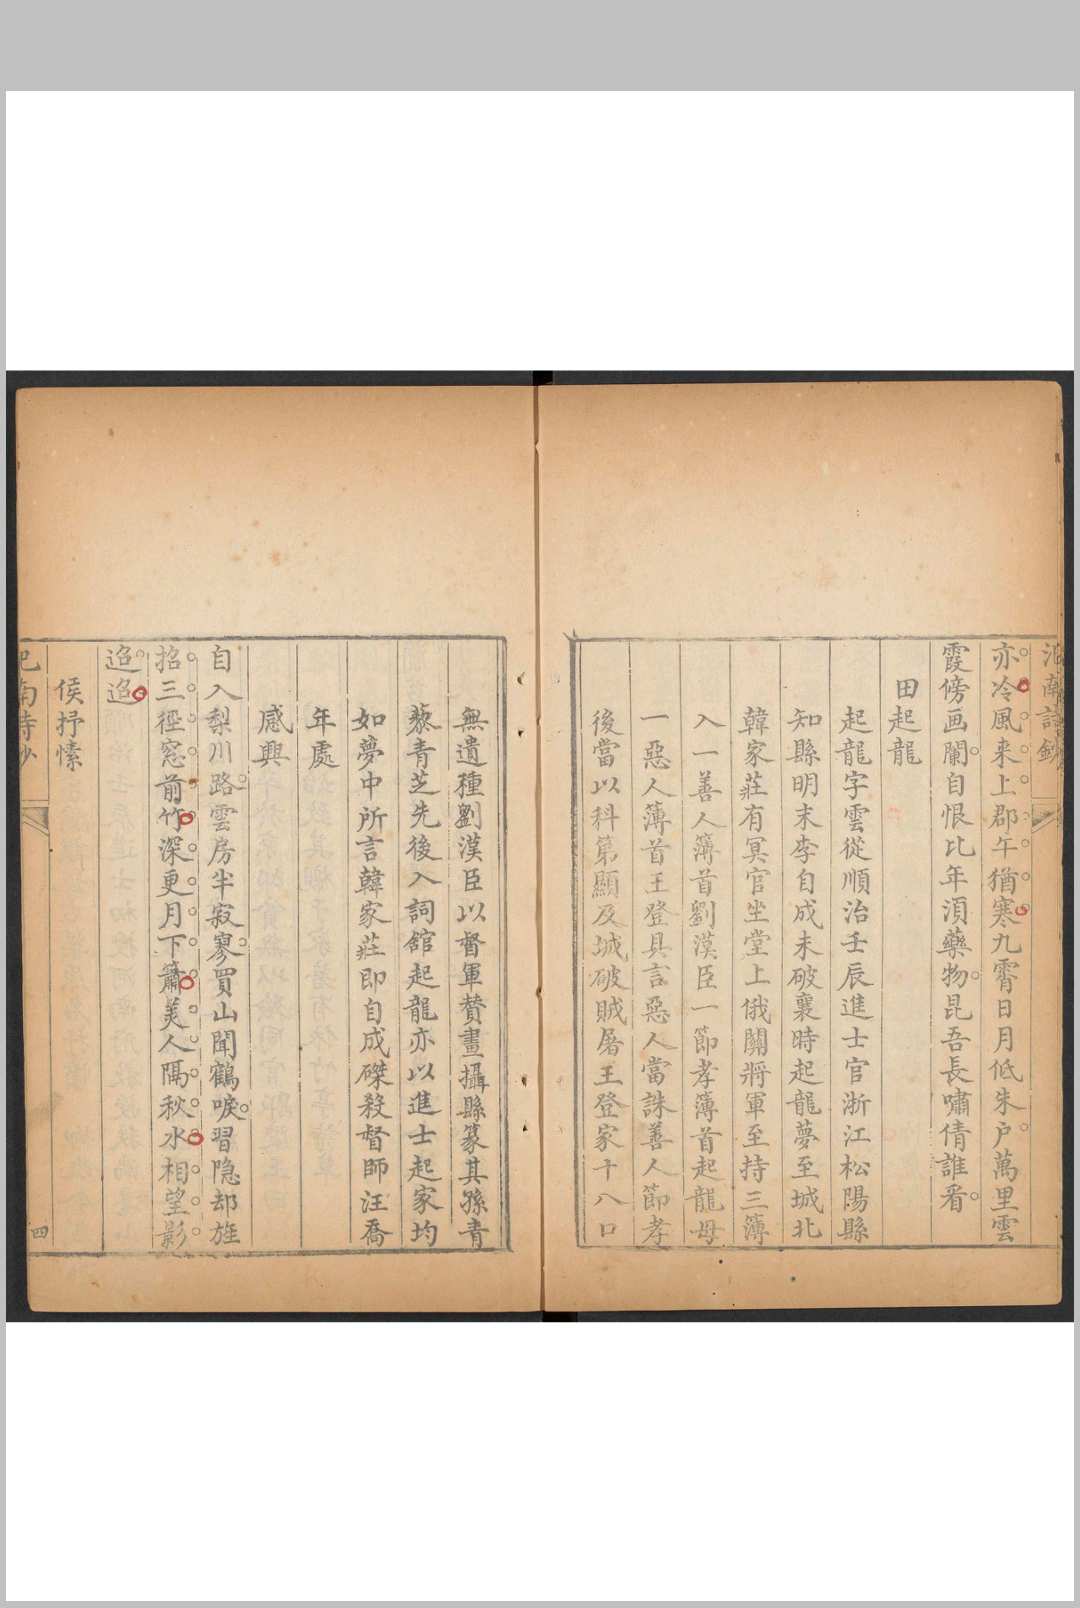 汜南詩鈔
亦冷風来上郡午猶寒九霄日月低朱户萬里雲
霞傍画闌自恨比年湏藥物昆吾長嘯倩誰看
田起龍
起龍字雲從順治壬辰進士官浙江松陽縣
知縣明末李自成未破襄時起龍夢至城北
韓家莊有冥官坐堂上俄關將軍至持三簿
入一善人簿首劉漢臣一節孝簿首起龍母
一惡人簿首王登具言惡人當誅善人節孝
後當以科第顯及城破賊屠王登家十八口
無遺種劉漢臣以督軍賛畫攝縣篆其孫青
藜青芝先後入詞舘起龍亦以進士起家均
如夢中所言韓家莊即自成磔殺督師汪喬
年處
感興
自入梨川路雲房半寂寥買山聞鶴唳習隐却旌
招三徑窓前竹深更月下簫美人隔秋水相望影
迢迢
侯抒愫
汜南詩鈔
四